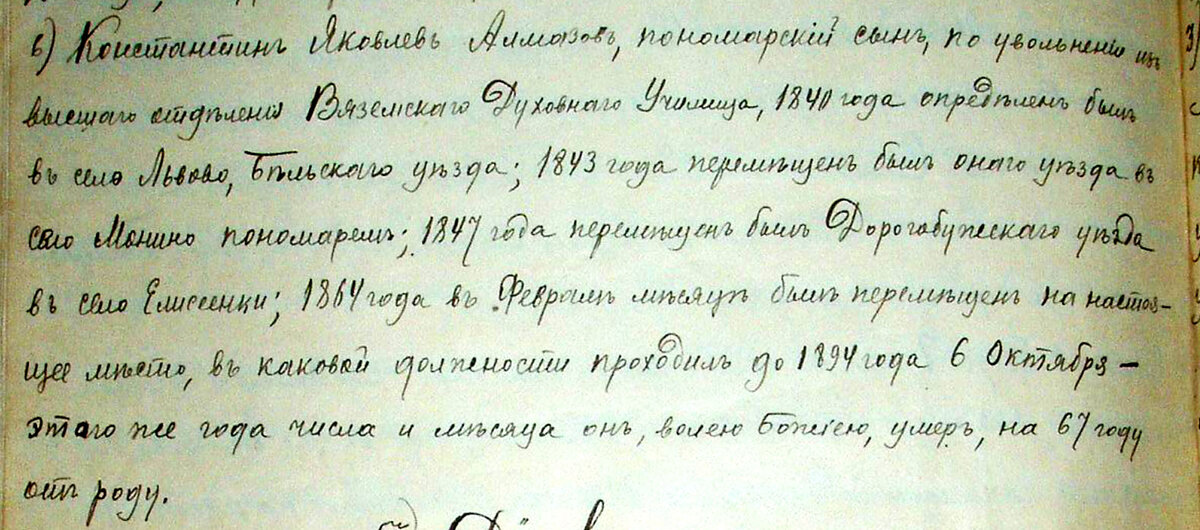 6) Константинъ Яковлевъ Алмазовъ, пономарскій сынъ, по увольненіи изъ
высшаго отдѣленія Вяземскаго Духовнаго Училища, 1840 года опредѣленъ былъ
въ село Львово, Бѣльскаго уѣзда; 1843 года перемѣщенъ былъ онаго уѣзда въ
село Монино пономаремъ; 1847 года перемѣщенъ былъ Дорогобужскаго уѣзда
въ село Елисеенки; 1864 года въ Февралѣ мѣсяцѣ былъ перемѣщенъ на настоя-
щее мѣсто, въ каковой должности проходилъ до 1894 года 6 Октября —
этаго же года числа и мѣсяца онъ, волею Божіею, умеръ, на 67 году
отъ роду.